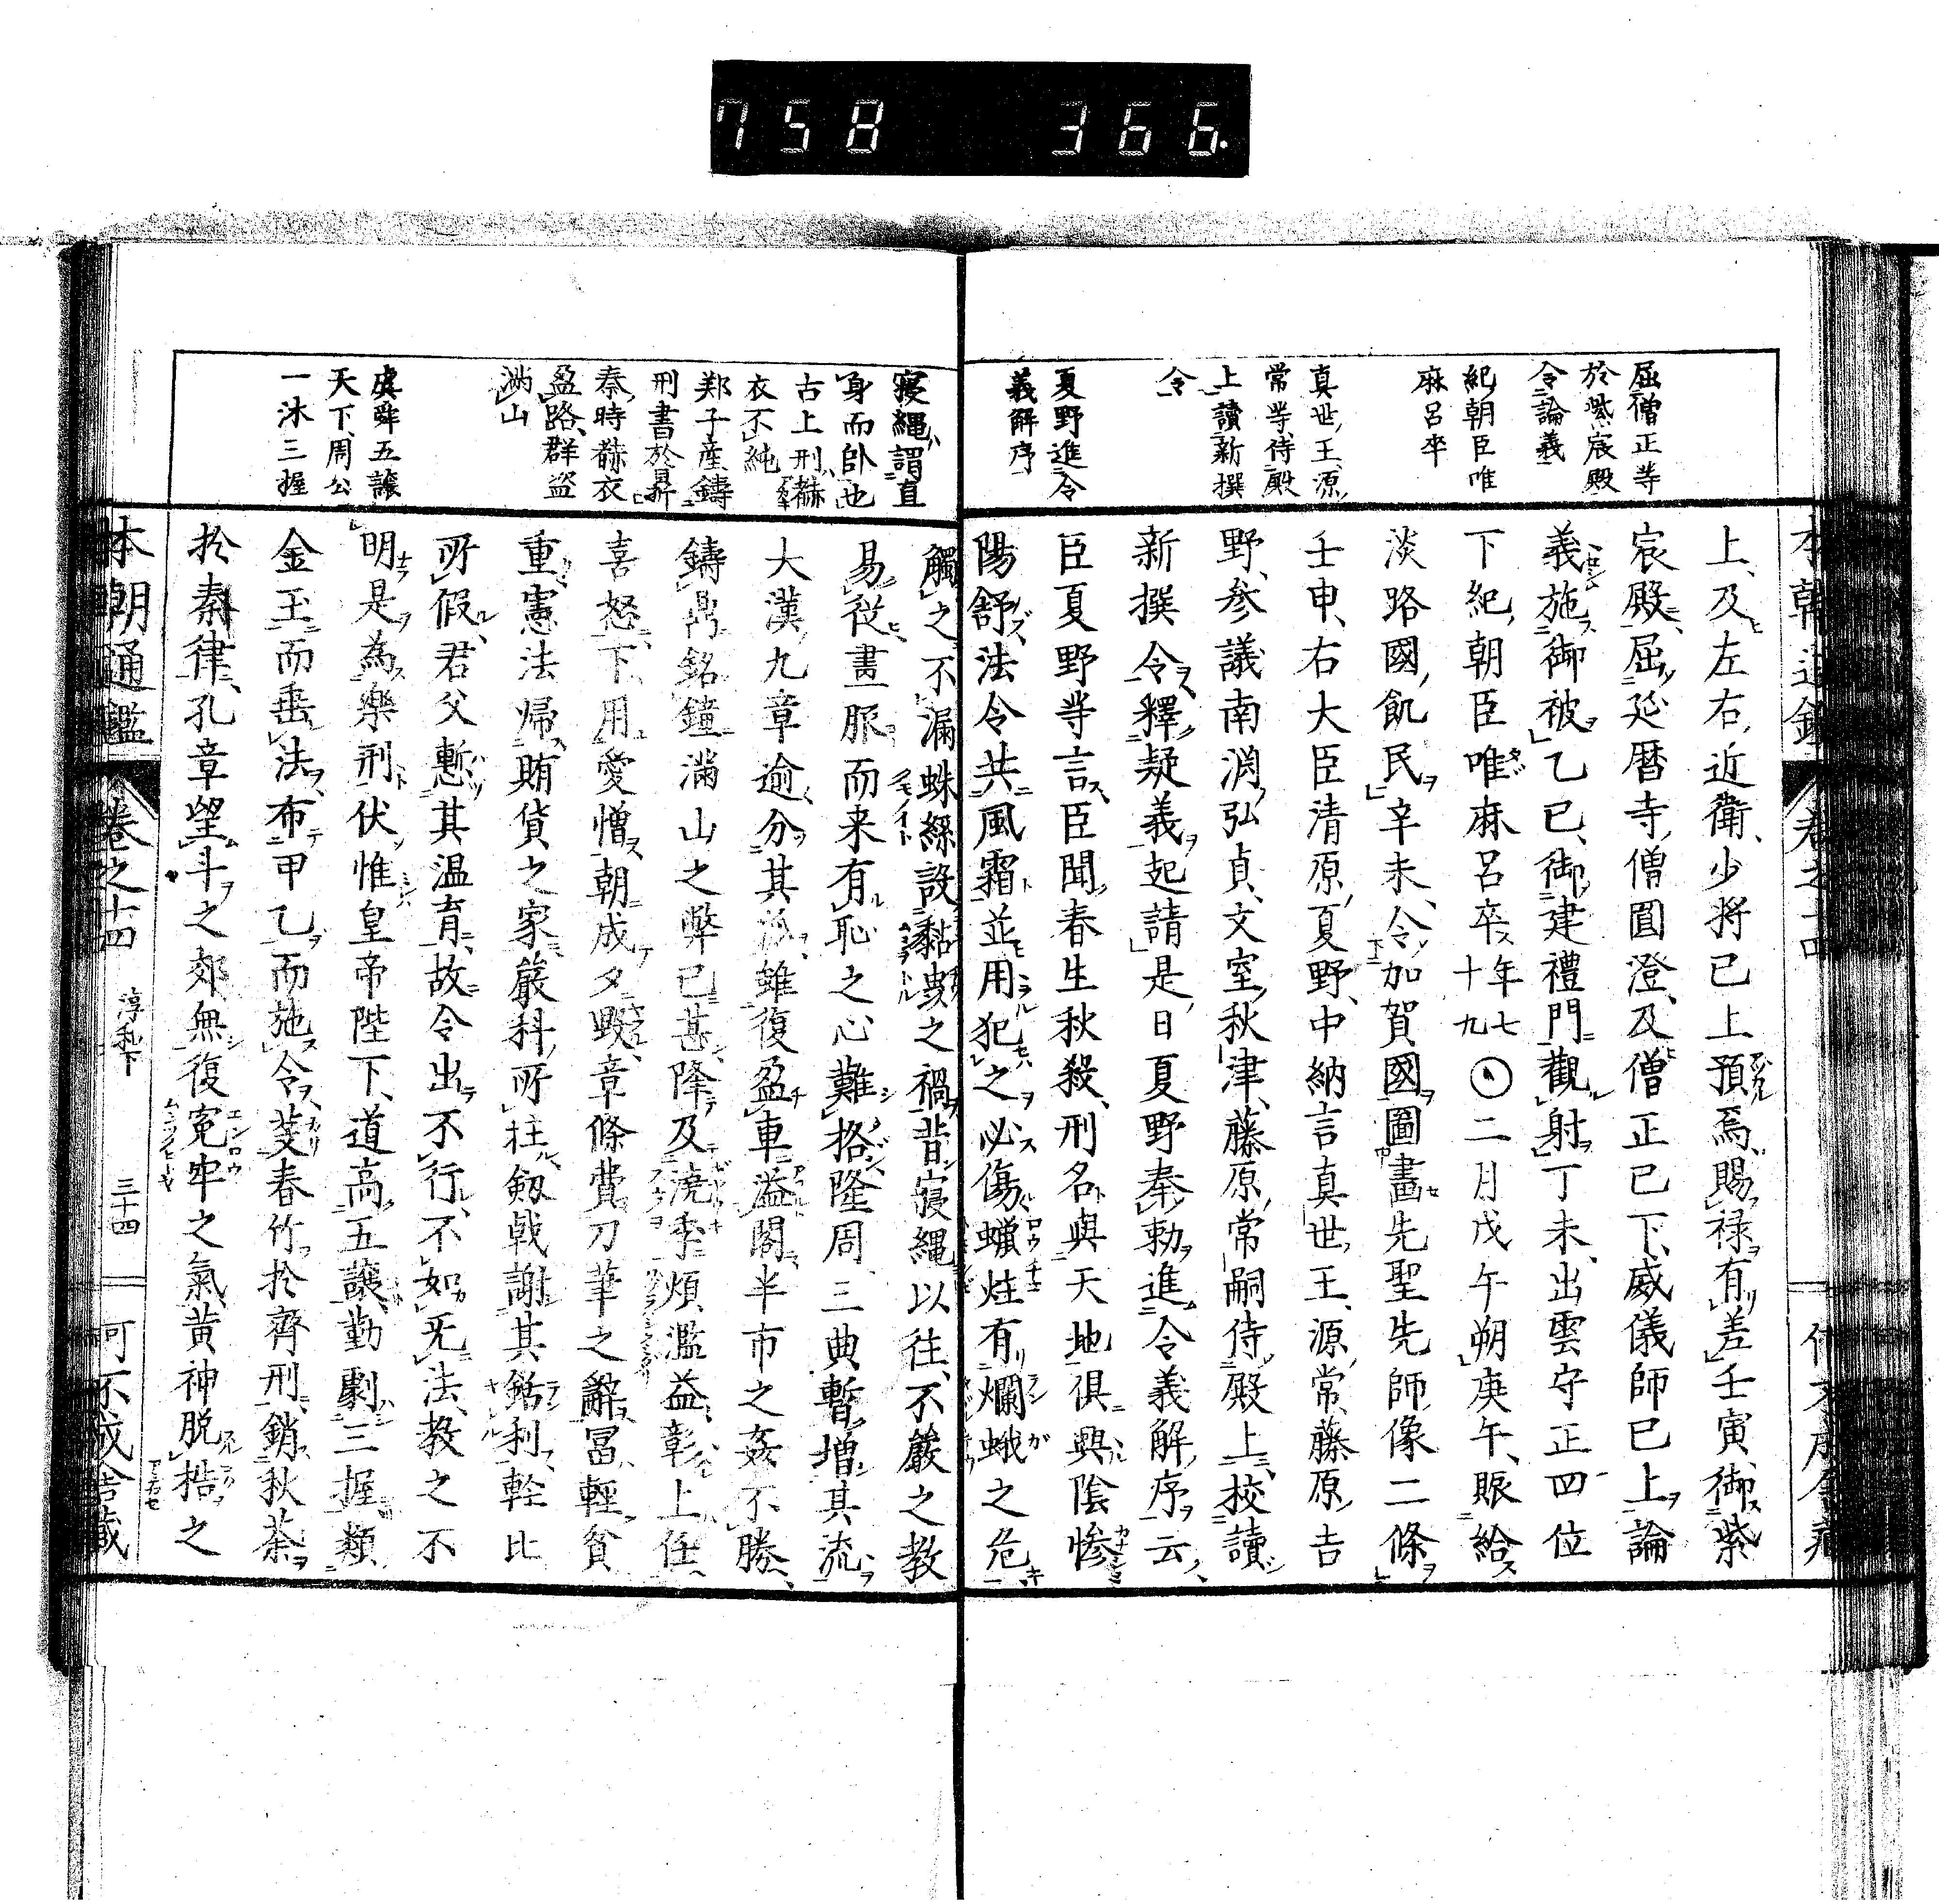 758 366.
屈僧正等
於紫宸殿
令論義
紀朝臣唯
麻呂卒
真世王源
常等侍殿
上讀新撰
令
夏野進令
義解序
上及左右近衛少将已上預焉賜禄有差壬寅御紫
宸殿屈延暦寺僧圓澄及僧正已下威儀師已上論
義施御被乙巳御建禮門觀射丁未出雲守正四位
下紀朝臣唯麻呂卒年七十九〇二月戊午朔庚午賑給
淡路國飢民辛未令加賀國圖畫先聖先師像二條
壬申右大臣清原夏野中納言真世王源常藤原吉
野参議南淵弘貞文室秋津藤原常嗣侍殿上校讀
新撰令釋疑義起請是日夏野奉勅進令義解序云
臣夏野等言臣聞春生秋殺刑名與天地俱興陰惨
陽舒法令共風霜並用犯之必傷蠟炷有爛蛾之危
寝縄謂直
身而卧也
古上刑赭
衣不純
鄭子産鑄
刑書於鼎
秦時赭衣
盈路群盗
満山
虞舜五譲
天下周公
一沐三握
觸之不漏蛛絲設黏蟲之禍昔寝縄以往不嚴之教
易従畫服而来有恥之心難格隆周三典暫増其流
大漢九章逾分其派雖復盈車溢閣半市之姦不勝
鑄鼎銘鐘満山之弊已甚降及澆季煩濫益彰上任
喜怒下用愛憎朝成夕毀章條費刀筆之辭冨輕貧
重憲法歸賄貨之家嚴科所枉劔戟謝其銛利輕比
所假君父慙其温育故令出不行不如无法教之不
明是為樂刑伏惟皇帝陛下道高五譲勤劇三握類
金玉而垂法布甲乙而施令芟春竹扵齊刑銷秋荼
扵秦律孔章望斗之郊無復寃牢之氣黄神脱梏之
本朝通鑑 卷之十四 淳和下 三十四